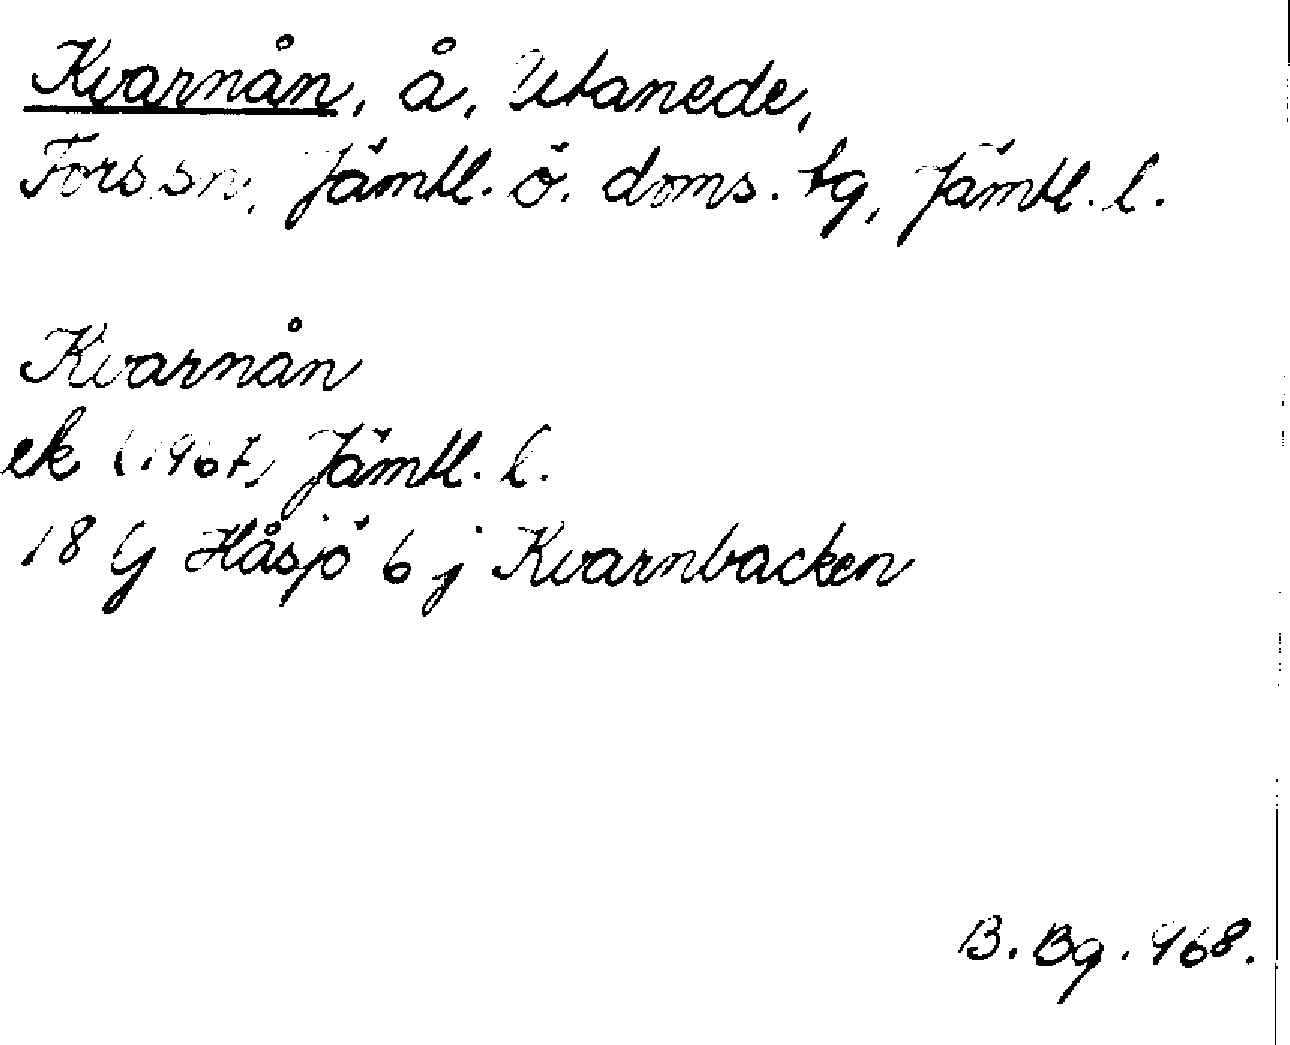 Kvarnån, å, Utanede,
Fors sn, Jämtl. ö. doms. tg, Jämtl. l.
Kvarnån
ek (1967) Jämtl. l.
18 G Håsjö 6 j Kvarnbacken
B. Bg. 968.